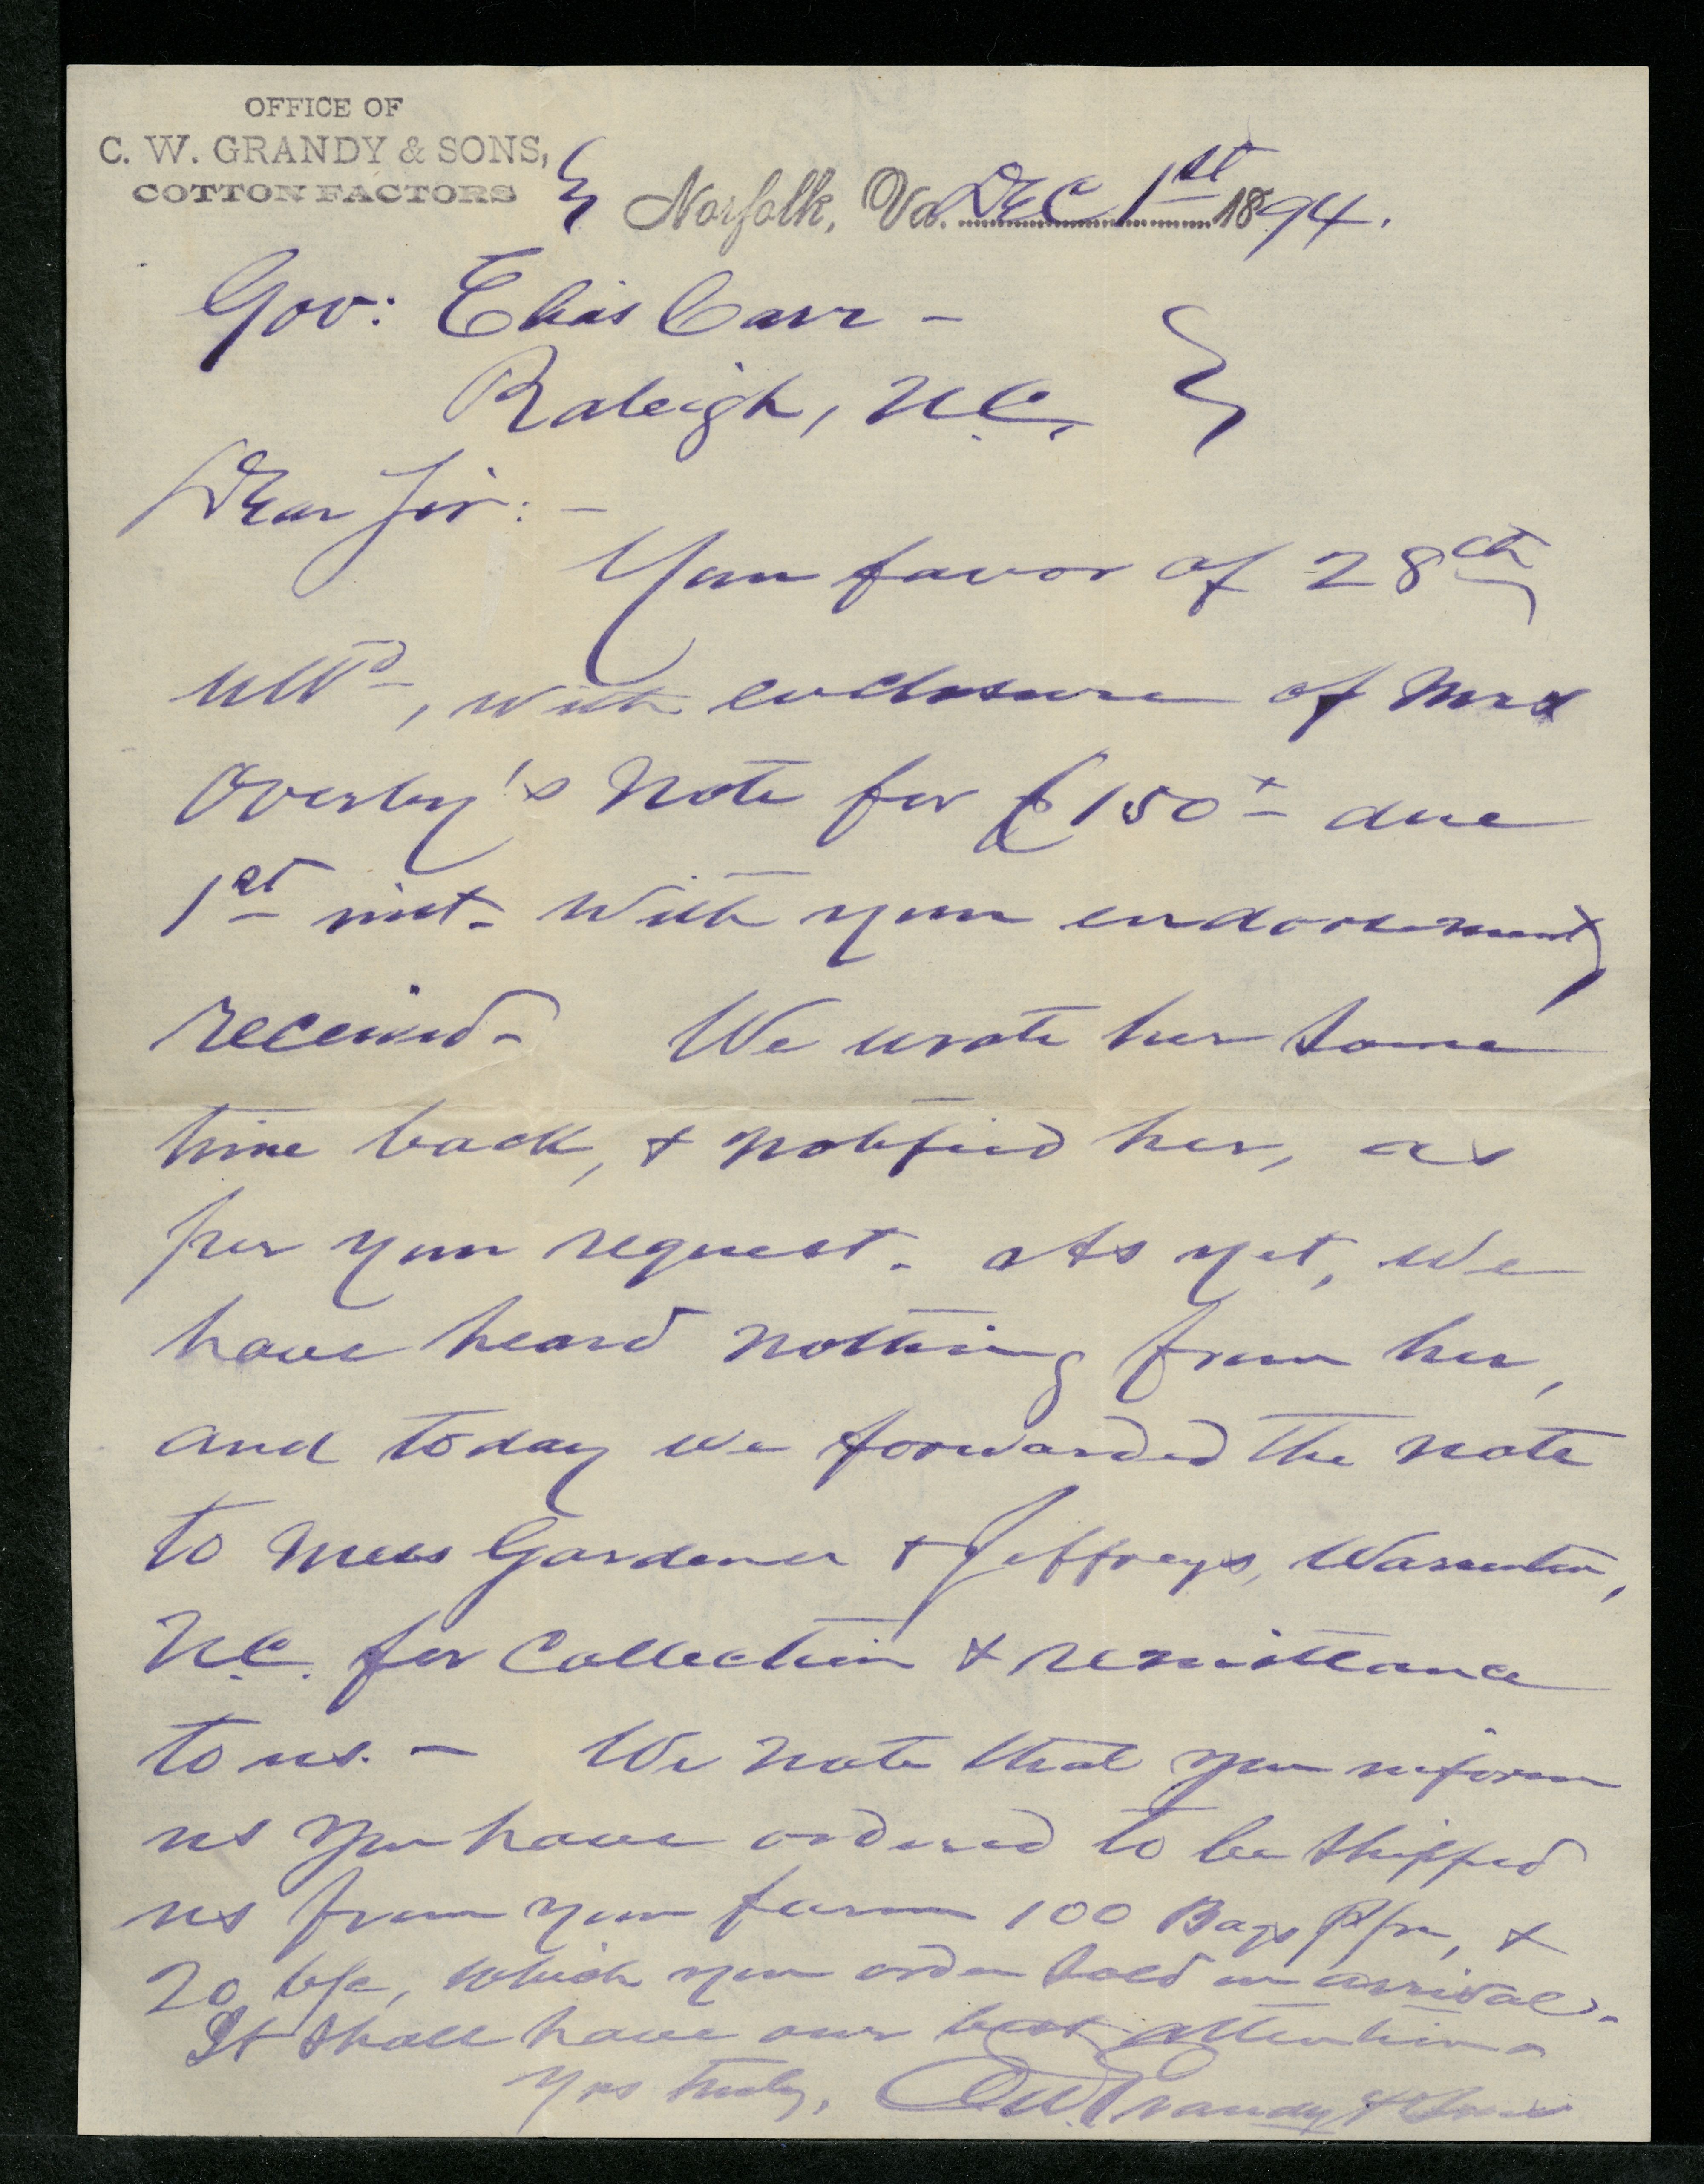 OFFICE OF
C. W. GRANDY & SONS,
COTTON FACTORS
Norfolk, Va. Dec 1st 1894.
Gov: Elias Carr -
Raleigh, N.C.
Dear Sir: -
Your favor of 28th
ulto, with enclosure of Mrs
Overby's Note for $150 due
1st inst. with your endorsement
received - We wrote her some
time back, & notified her, as
per your request. As yet, we
have heard nothing from her,
and today we forwarded the note
to Mess Gardener & Jeffreys, Warrenton,
N.C. for Collection & remittance
to us. - We note that you inform
us you have ordered to be shipped
us from your farm 100 Bags &
20 b/c, which you order sold on arrival.
It shall have our best attention
Yrs truly, CW Grandy & Sons